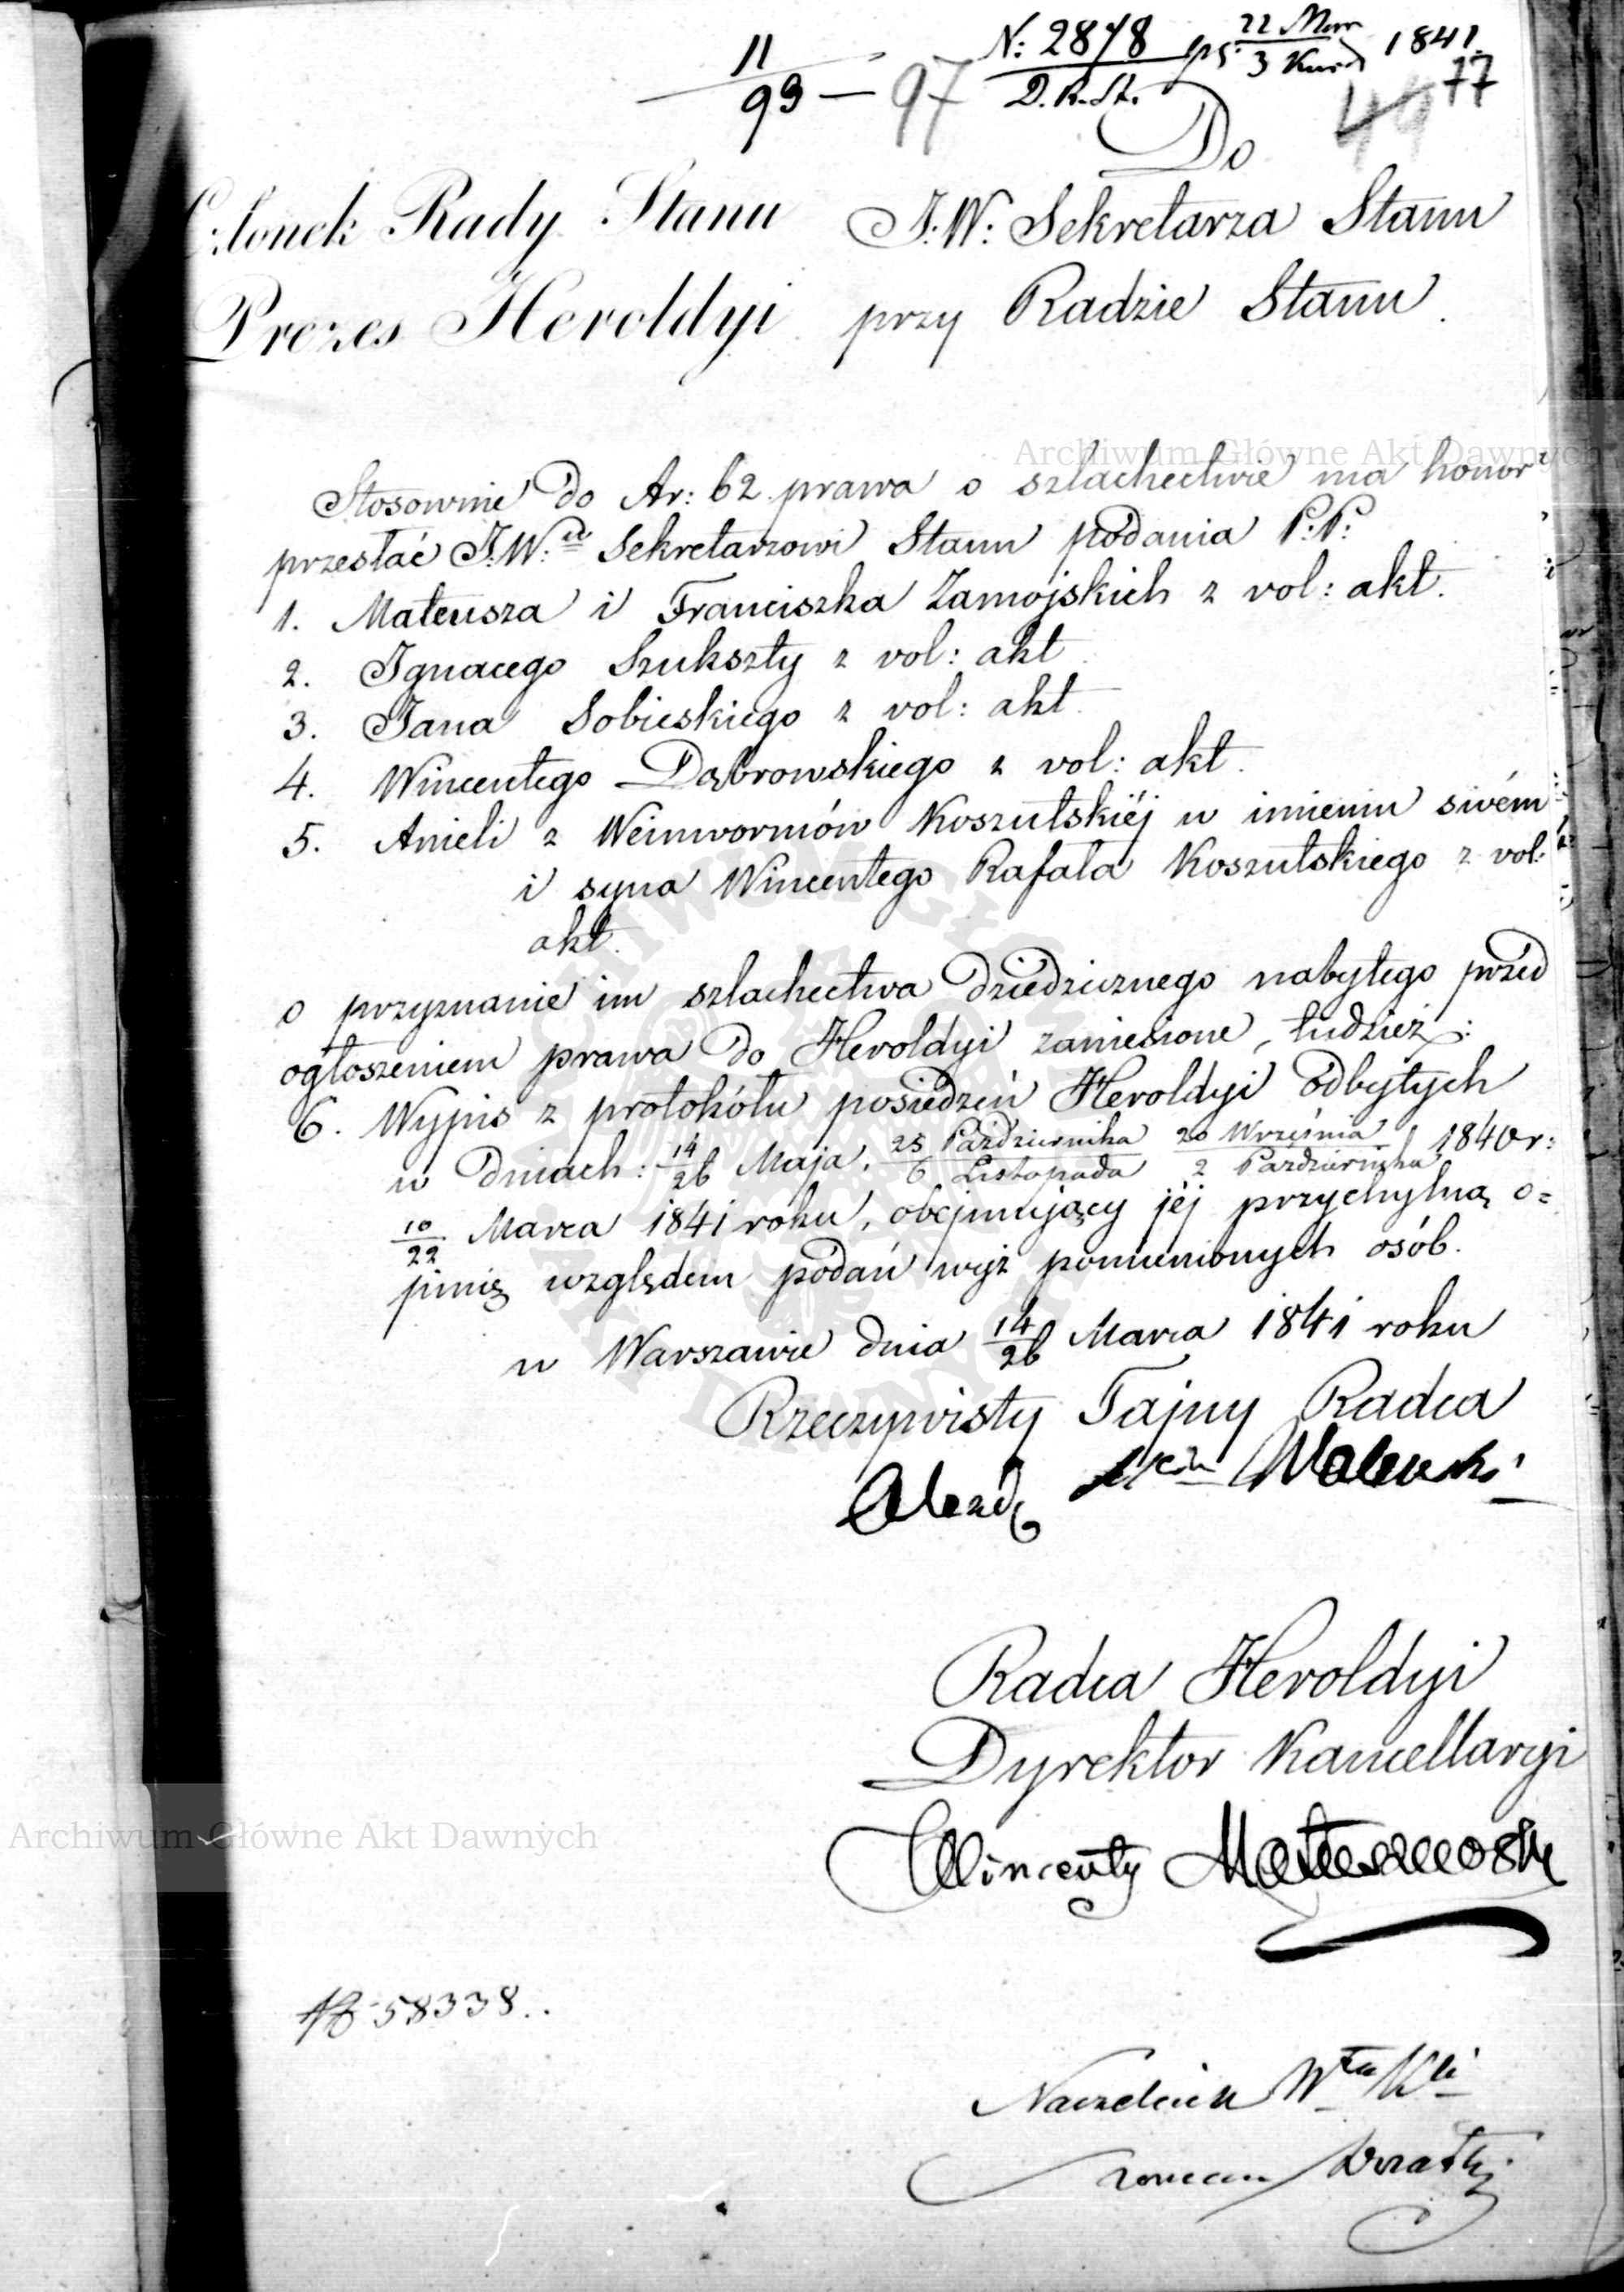 11
99 — 97
N: 2878
D.R.St.
22
3
1841.
49
77
Członek Rady Stanu
Prezes Heroldyi
Do
J.W: Sekretarza Stanu
przy Radzie Stanu.
Stosownie do Ar: 62 prawa o szlachectwie ma honor
przesłać J.W: Sekretarzowi Stanu podania P:P:
1. Mateusza i Franciszka Zamojskich z vol: akt.
2. Ignacego Szukszty z vol: akt.
3. Jana Sobieskiego z vol: akt.
4. Wincentego Dąbrowskiego z vol: akt.
5. Anieli z Weinwormów Koszutskiéj w imieniu swém
i syna Wincentego Rafała Koszutskiego z vol:
akt.
o przyznanie im szlachectwa dziedzicznego nabytego przed
ogłoszeniem prawa do Heroldyi zaniesione, tudzież:
6. Wypis z protokółu posiedzeń Heroldyi odbytych
w dniach: 14/26 Maja, 25 Października/6 Listopada 20 Września/2 Października 1840 r:
10/22 Marca 1841 roku, obejmujący jéj przychylną o=
pinię względem podań wyż pomienionych osób.
w Warszawie dnia 14/26 Marca 1841 roku
Rzeczywisty Tajny Radca
Walewski
Radca Heroldyi
Dyrektor Kancellaryi
Wincenty
№ 58338..
Naczelnik
Archiwum Główne Akt Dawnych
Archiwum Główne Akt Dawnych
ARCHIWUM GŁÓWNE AKT DAWNYCH